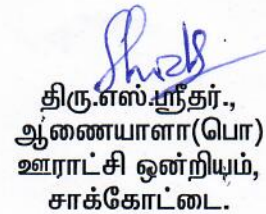 திரு.எஸ்.ஸ்ரீதர்.,
ஆணையாளா(பொ)
ஊராட்சி ஒன்றியம்,
சாக்கோட்டை.